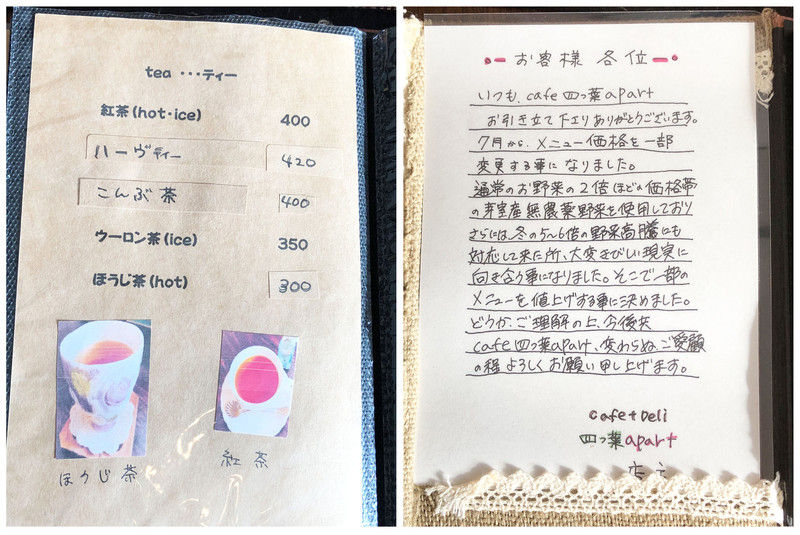 tea ・・・ティー
紅茶(hot・ice) 400
ハーヴティー 420
こんぶ茶 400
ウーロン茶(ice) 350
ほうじ茶(hot) 300
ほうじ茶
紅茶
お客様 各位
いつも、cafe 四つ葉apart
お引き立て下エリありがとうございます。
7月から、メニュー価格を一部
変更する事に なりました。
通常のお野菜の2倍ほどの価格帯
の芽室産無農薬野菜を使用しており
さらには、冬の5〜6倍の野菜高騰にも
対応して来た所、大変きびしい現実に
向き合う事になりました。そこで一部の
メニューを値上げする事に決めました。
どうか、ご理解の上、今後共
cafe 四つ葉apart、変わらぬご愛顧
の程 よろしく お願い申し上げます。
cafe+Deli
四つ葉apart
店主